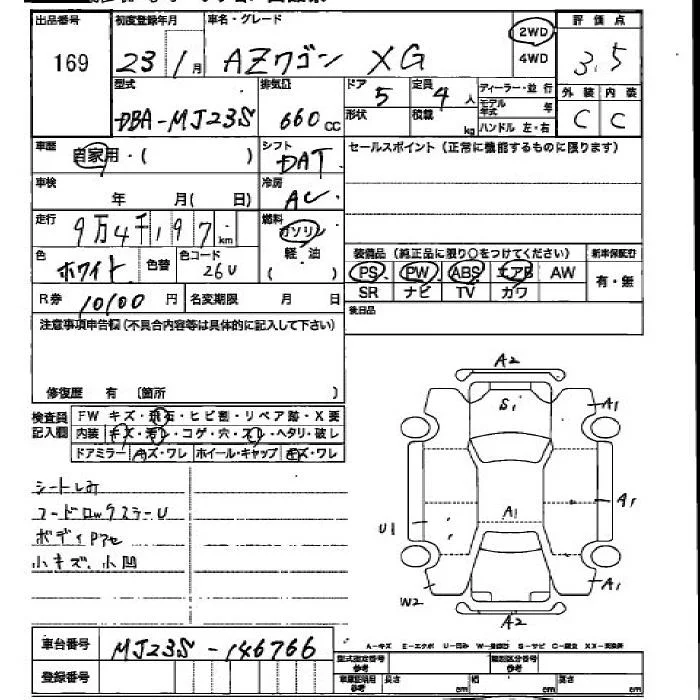 出品番号 初度登録年月 車名・グレード 評価点
169 23/1月 AZワゴン XG 2WD 4WD 3.5
型式 排気量 ドア 定員 ディーラー・並行 外装 内装
DBA-MJ23S 660cc 5 4人 モデル年式 年 C C
形状 積載 kg ハンドル 左・右
車歴 自家用・( ) シフト DAT セールスポイント(正常に機能するものに限ります)
車検 年 月( 日) 冷房 AC
走行 9万4千197km 燃料 ガソリン
色 ホワイト 色替 色コード 26U 軽油 ( ) 装備品(純正品に限り○をつけてください) 新車保証書
PS PW ABS エアB AW 有・無
R券 10100円 名変期限 月 日 SR ナビ TV カワ
注意事項申告欄(不具合内容等は具体的に記入して下さい) 後日品
修復歴 有 〔箇所 〕
検査員記入欄 FW キズ・飛石・ヒビ割・リペア跡・X要
内装 キズ・汚レ・コゲ・穴・スレ・ヘタリ・破レ
ドアミラー キズ・ワレ ホイール・キャップ キズ・ワレ
シートしみ
ボディ
小キズ、小凹
A2
S1
A1
A1
A1
U1
W2
A1
A2
車台番号 MJ23S-146766
登録番号
A-キズ E-エクボ U-凹み W-補修ひ S-サビ C-腐食 XX-交換済
型式指定番号 参考 類別区分番号 参考
車庫証明用 参考 長さ cm 幅 cm 高さ cm